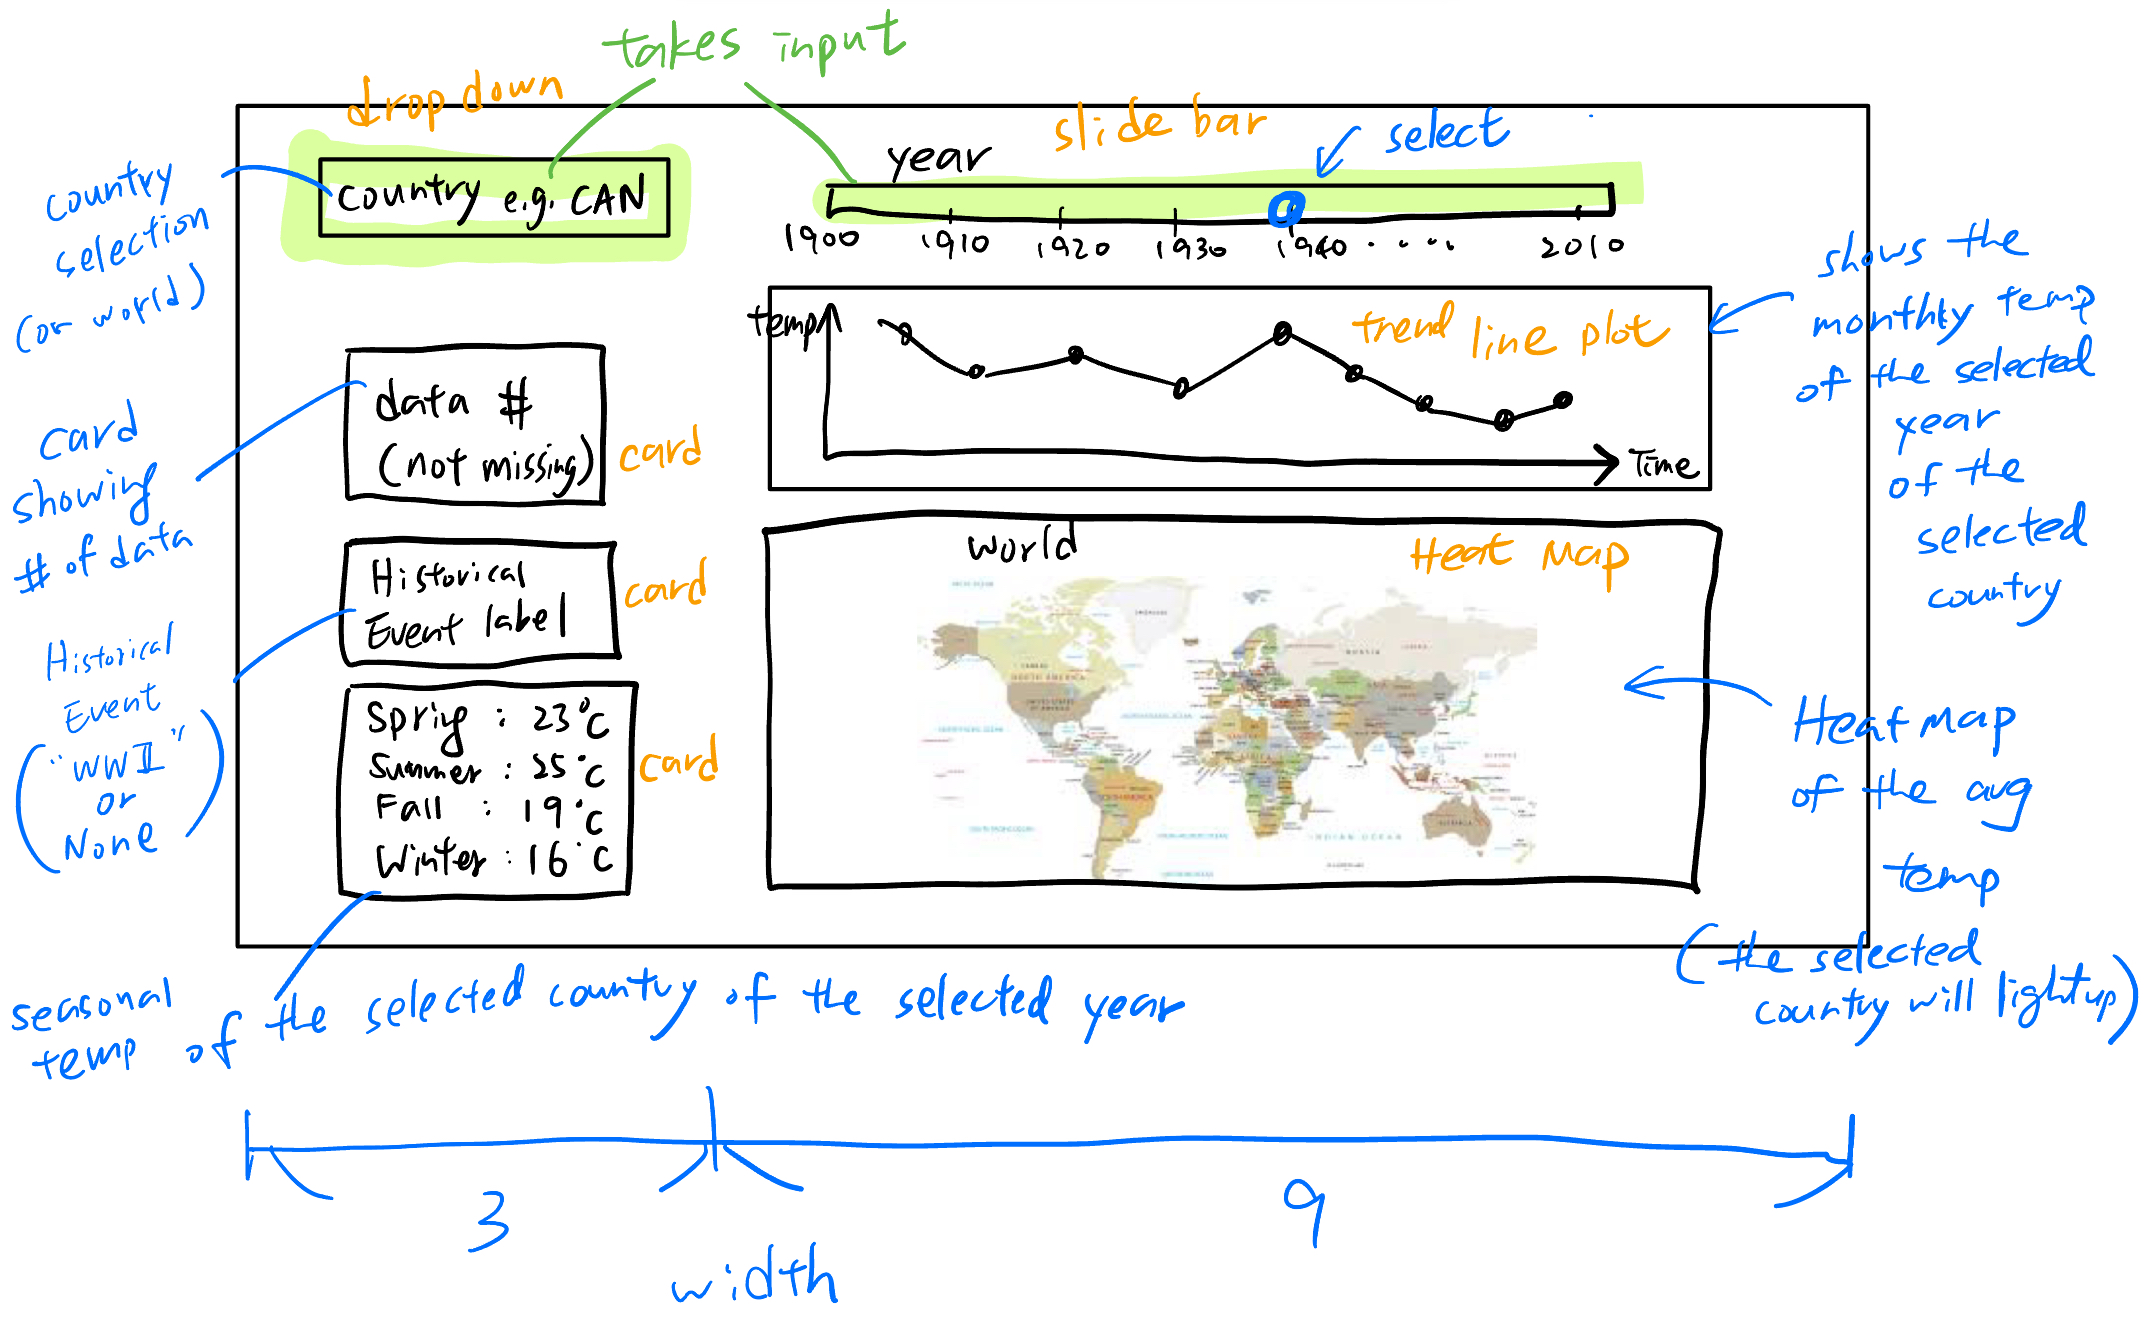 takes input
drop down
slide bar
select
year
country e.g. CAN
country
selection
(or world)
1900 1910 1920 1930 1940 . . . . 2010
shows the
monthly temp
of the selected
year
of the
selected
country
temp
trend line plot
Time
data #
(not missing)
card
card
showing
# of data
world
Heat Map
Historical
Event label
card
Historical
Event
("WWII"
or
None)
Spring : 23°C
Summer : 25°C
Fall : 19°C
Winter : 16°C
card
NORTH AMERICA
RUSSIA
INDIAN OCEAN
Heat map
of the avg
temp
(the selected
country will light up)
seasonal
temp of the selected country of the selected year
3
9
width